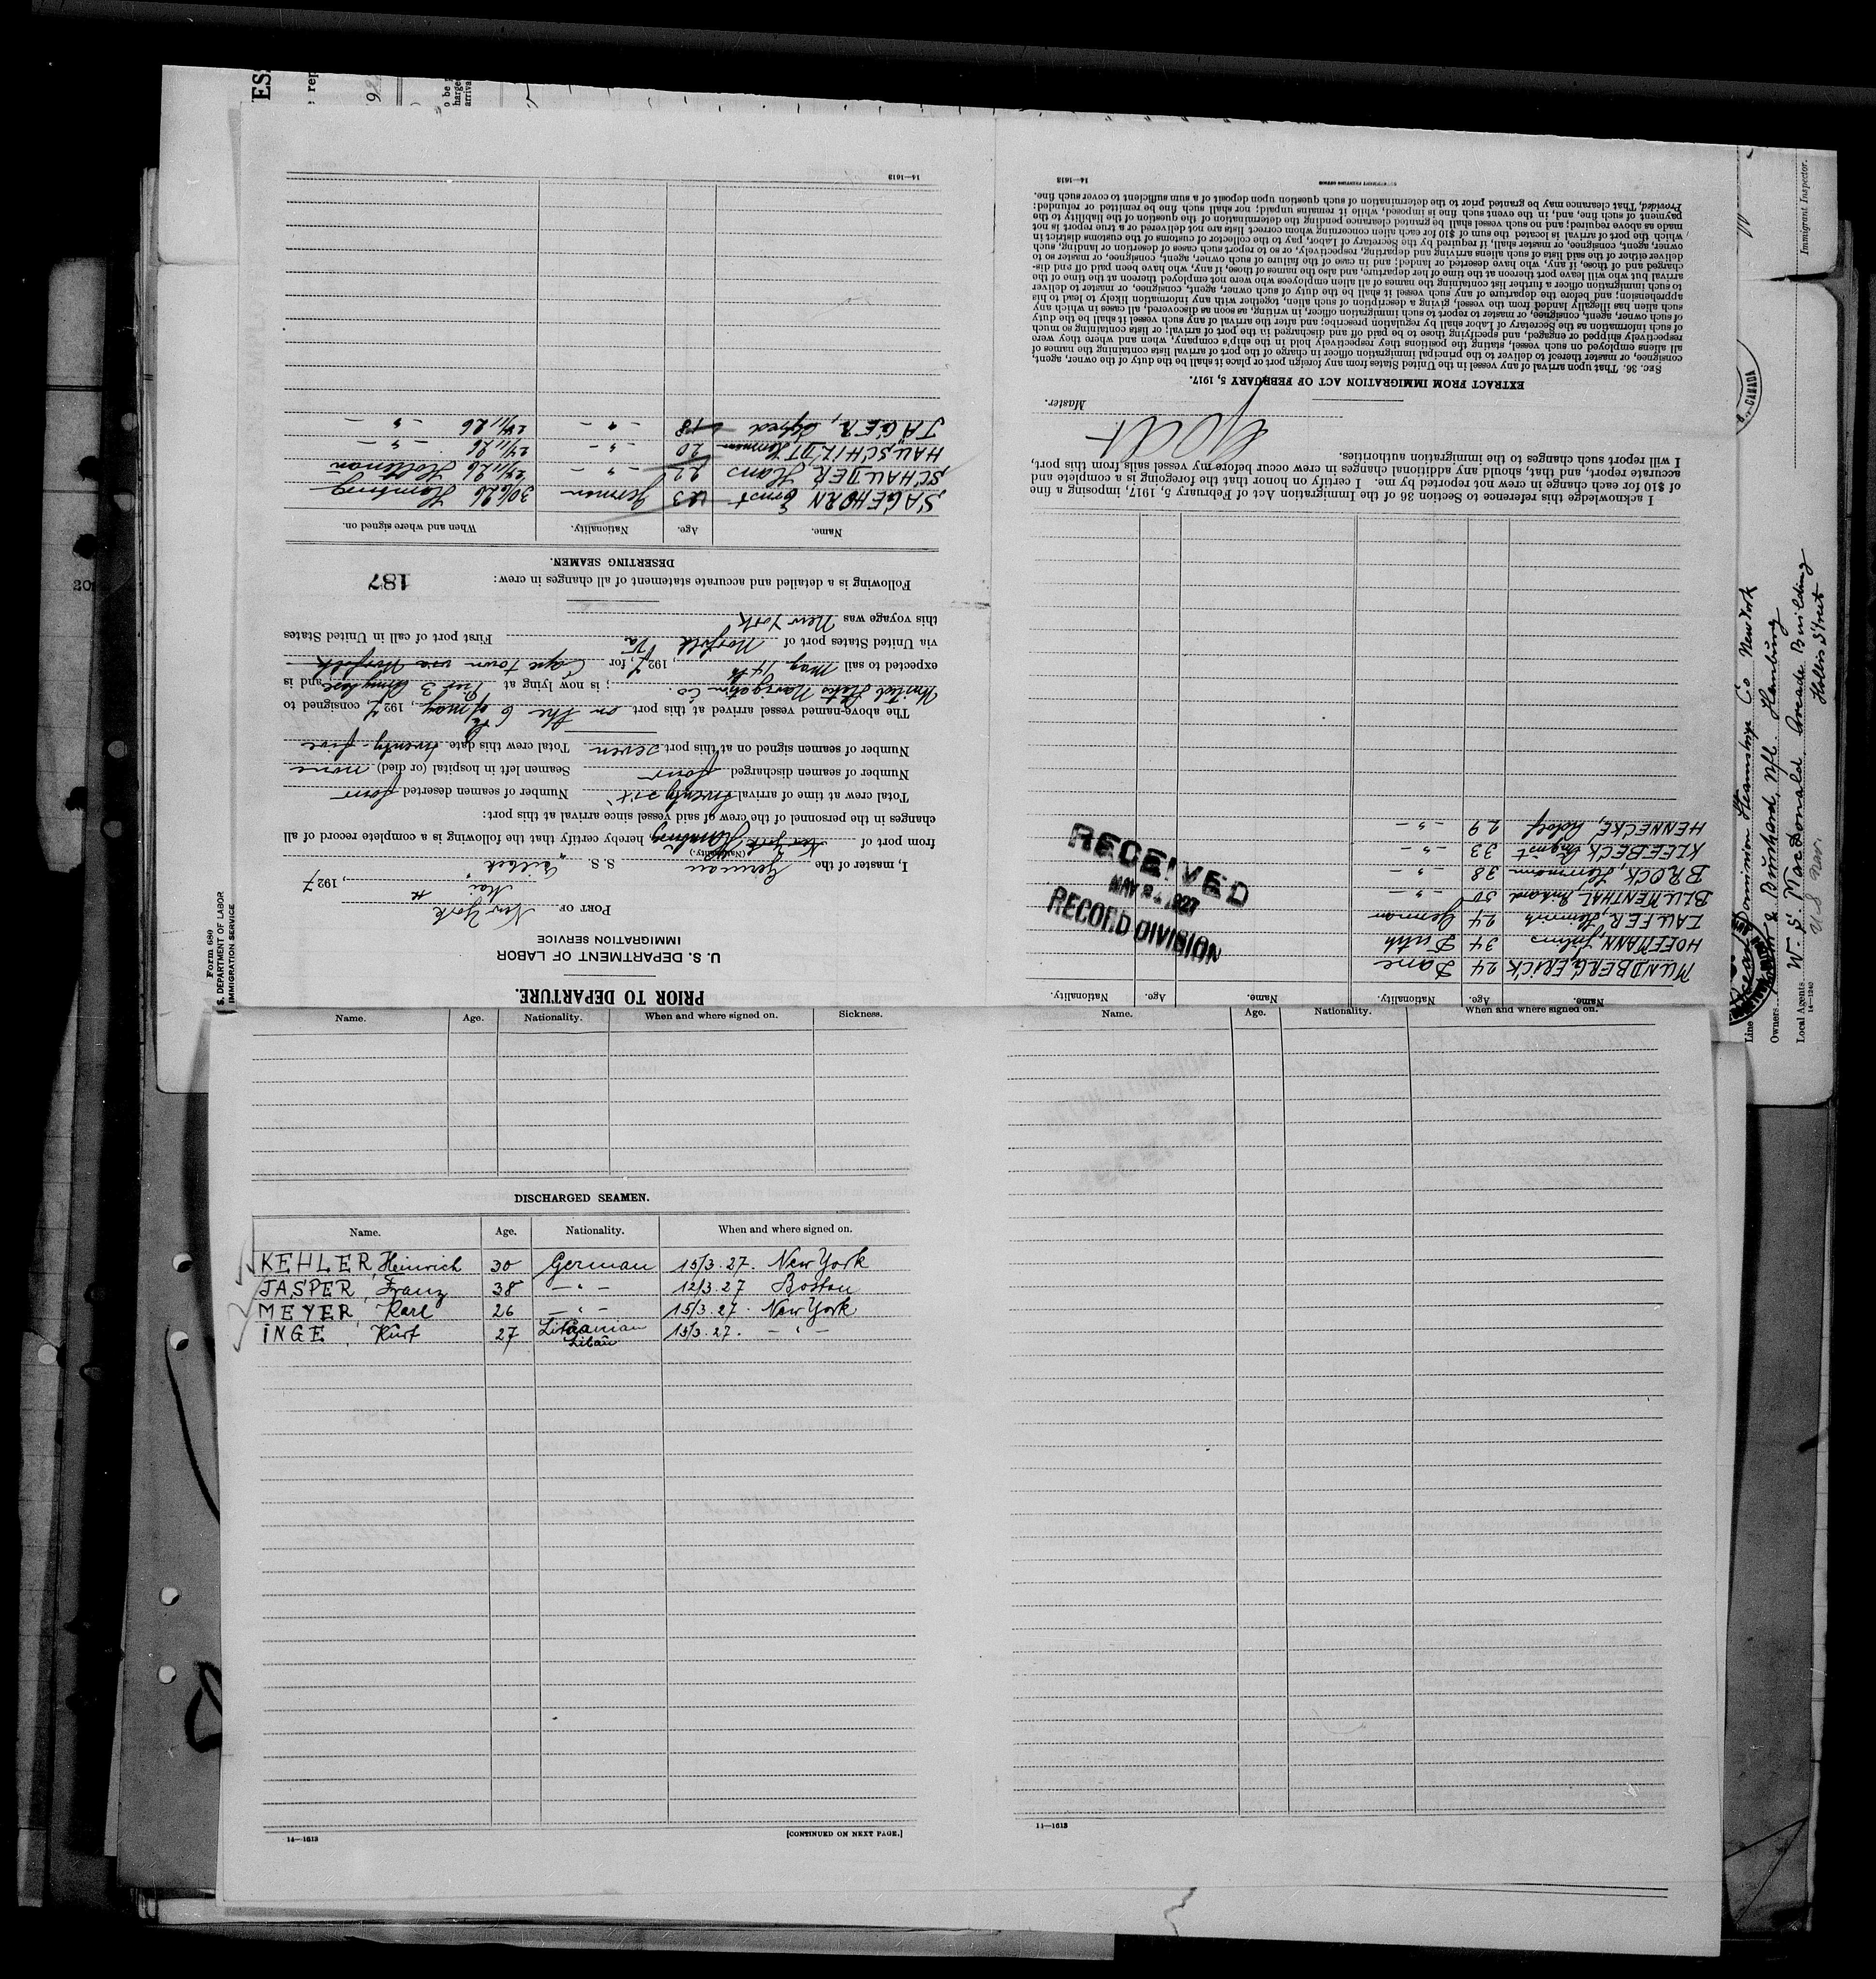 Form 680
S. DEPARTMENT OF LABOR
IMMIGRATION SERVICE
PRIOR TO DEPARTURE.
U. S. DEPARTMENT OF LABOR
IMMIGRATION SERVICE
PORT OF New York
Mai 1927
I, master of the German S. S. "
(Nationality.)
from port of New York Hamburg hereby certify that the following is a complete record of all
changes in the personnel of the crew of said vessel since arrival at this port:
Total crew at time of arrival twenty six Number of seamen deserted four
Number of seamen discharged four Seamen left in hospital (or died) none
Number of seamen signed on at this port seven Total crew this date twenty five
The above-named vessel arrived at this port on the 6th of May, 1927, consigned to
United States Navigation Co.; is now lying at Pier 3 and is
expected to sail May 14th, 1927, for Cape Town via Norfolk
via United States port of Norfolk Va First port of call in United States
this voyage was New York
Following is a detailed and accurate statement of all changes in crew:
187
DESERTING SEAMEN.
Name. Age. Nationality. When and where signed on.
SAGEHORN Ernst 23 German 30/6 26 Hamburg
SCHAUDER Hans 22 - " - 24/11 26 Holtenau
HAUSCHILDT Hermann 20 - " - 24/11 26 - " -
JÄGER, Alfred 18 - " - 24/11 26 - " -
14—1613
Name. Age. Nationality. Name. Age. Nationality.
MUNDBERG, ERICK 24 Dane
HOFFMANN, Julius 34 Dutch
LAUFER, Heinrich 24 German
BLUMENTHAL, Richard 50 - " -
BROCK, Hermann 38 - " -
KLEEBECK August 33 - " -
HENNECKE, Adolf 29 - " -
RECEIVED
MAY 24 1927
RECORD DIVISION
I acknowledge this reference to Section 36 of the Immigration Act of February 5, 1917, imposing a fine
of $10 for each change in crew not reported by me. I certify on honor that the foregoing is a complete and
accurate report, and that, should any additional changes in crew occur before my vessel sails from this port,
I will report such changes to the immigration authorities.
Master.
EXTRACT FROM IMMIGRATION ACT OF FEBRUARY 5, 1917.
SEC. 36. That upon arrival of any vessel in the United States from any foreign port or place it shall be the duty of the owner, agent,
consignee, or master thereof to deliver to the principal immigration officer in charge of the port of arrival lists containing the names of
all aliens employed on such vessel, stating the positions they respectively hold in the ship's company, when and where they were
respectively shipped or engaged, and specifying those to be paid off and discharged in the port of arrival; or lists containing so much
of such information as the Secretary of Labor shall by regulation prescribe; and after the arrival of any such vessel it shall be the duty
of such owner, agent, consignee, or master to report to such immigration officer, in writing, as soon as discovered, all cases in which any
such alien has illegally landed from the vessel, giving a description of such alien, together with any information likely to lead to his
apprehension; and before the departure of any such vessel it shall be the duty of such owner, agent, consignee, or master to deliver
to such immigration officer a further list containing the names of all alien employees who were not employed thereon at the time of the
arrival but who will leave port thereon at the time of her departure, and also the names of those, if any, who have been paid off and dis-
charged and of those, if any, who have deserted or landed; and in case of the failure of such owner, agent, consignee, or master so to
deliver either of the said lists of such aliens arriving and departing, respectively, or so to report such cases of desertion or landing, such
owner, agent, consignee, or master shall, if required by the Secretary of Labor, pay to the collector of customs of the customs district in
which the port of arrival is located the sum of $10 for each alien concerning whom correct lists are not delivered or a true report is not
made as above required; and no such vessel shall be granted clearance pending the determination of the question of the liability to the
payment of such fine, and, in the event such fine is imposed, while it remains unpaid; nor shall such fine be remitted or refunded:
Provided, That clearance may be granted prior to the determination of such question upon deposit of a sum sufficient to cover such fine.
14—1613
Immigrant Inspector.
CANADA
Line Dominion Steamship Co New York
Owners & Burchard, Nfl. Hamburg
Local Agents W. S. MacDonald. Arcade Building
Hollis Street
14—1240
Name. Age. Nationality. When and where signed on. Sickness.
Name. Age. Nationality. When and where signed on.
DISCHARGED SEAMEN.
Name. Age. Nationality. When and where signed on.
KEHLER, Heinrich 30 German 15/3. 27. New York
JASPER, Franz 38 - " - 12/3. 27 Boston
MEYER, Karl 26 - " - 15/3. 27. New York
INGE, Kurt 27 Libau 15/3. 27. - " -
14—1613 [CONTINUED ON NEXT PAGE.]
11—1613